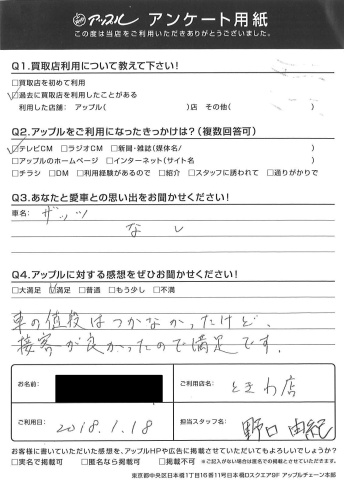 アップル アンケート用紙
この度は当店をご利用いただきありがとうございました。
Q1.買取店利用について教えて下さい!
□買取店を初めて利用
☑過去に買取店を利用したことがある
利用した店舗: アップル( )店 その他( )
Q2.アップルをご利用になったきっかけは?(複数回答可)
☑テレビCM □ラジオCM □新聞・雑誌(媒体名/ )
□アップルのホームページ □インターネット(サイト名 )
□チラシ □DM □利用経験があるので □紹介 □スタッフに誘われて □通りがかりで
Q3.あなたと愛車との思い出をお聞かせください!
車名: ザッツ
なし
Q4.アップルに対する感想をぜひお聞かせください!
□大満足 ☑満足 □普通 □もう少し □不満
車の値段はつかなかったけど、
接客が良かったので満足です.
お名前:
ご利用店名: ときわ店
ご利用日: 2018.1.18
担当スタッフ名: 野口 由紀
お客様に書いていただいた感想を、アップルHPや広告に掲載させていただいてもよろしいでしょうか?
□実名で掲載可 □匿名なら掲載可 □掲載不可 ※ご記入がない場合は匿名での掲載とさせていただきます。
東京都中央区日本橋1丁目16番11号日本橋Dスクエア9F アップルチェーン本部